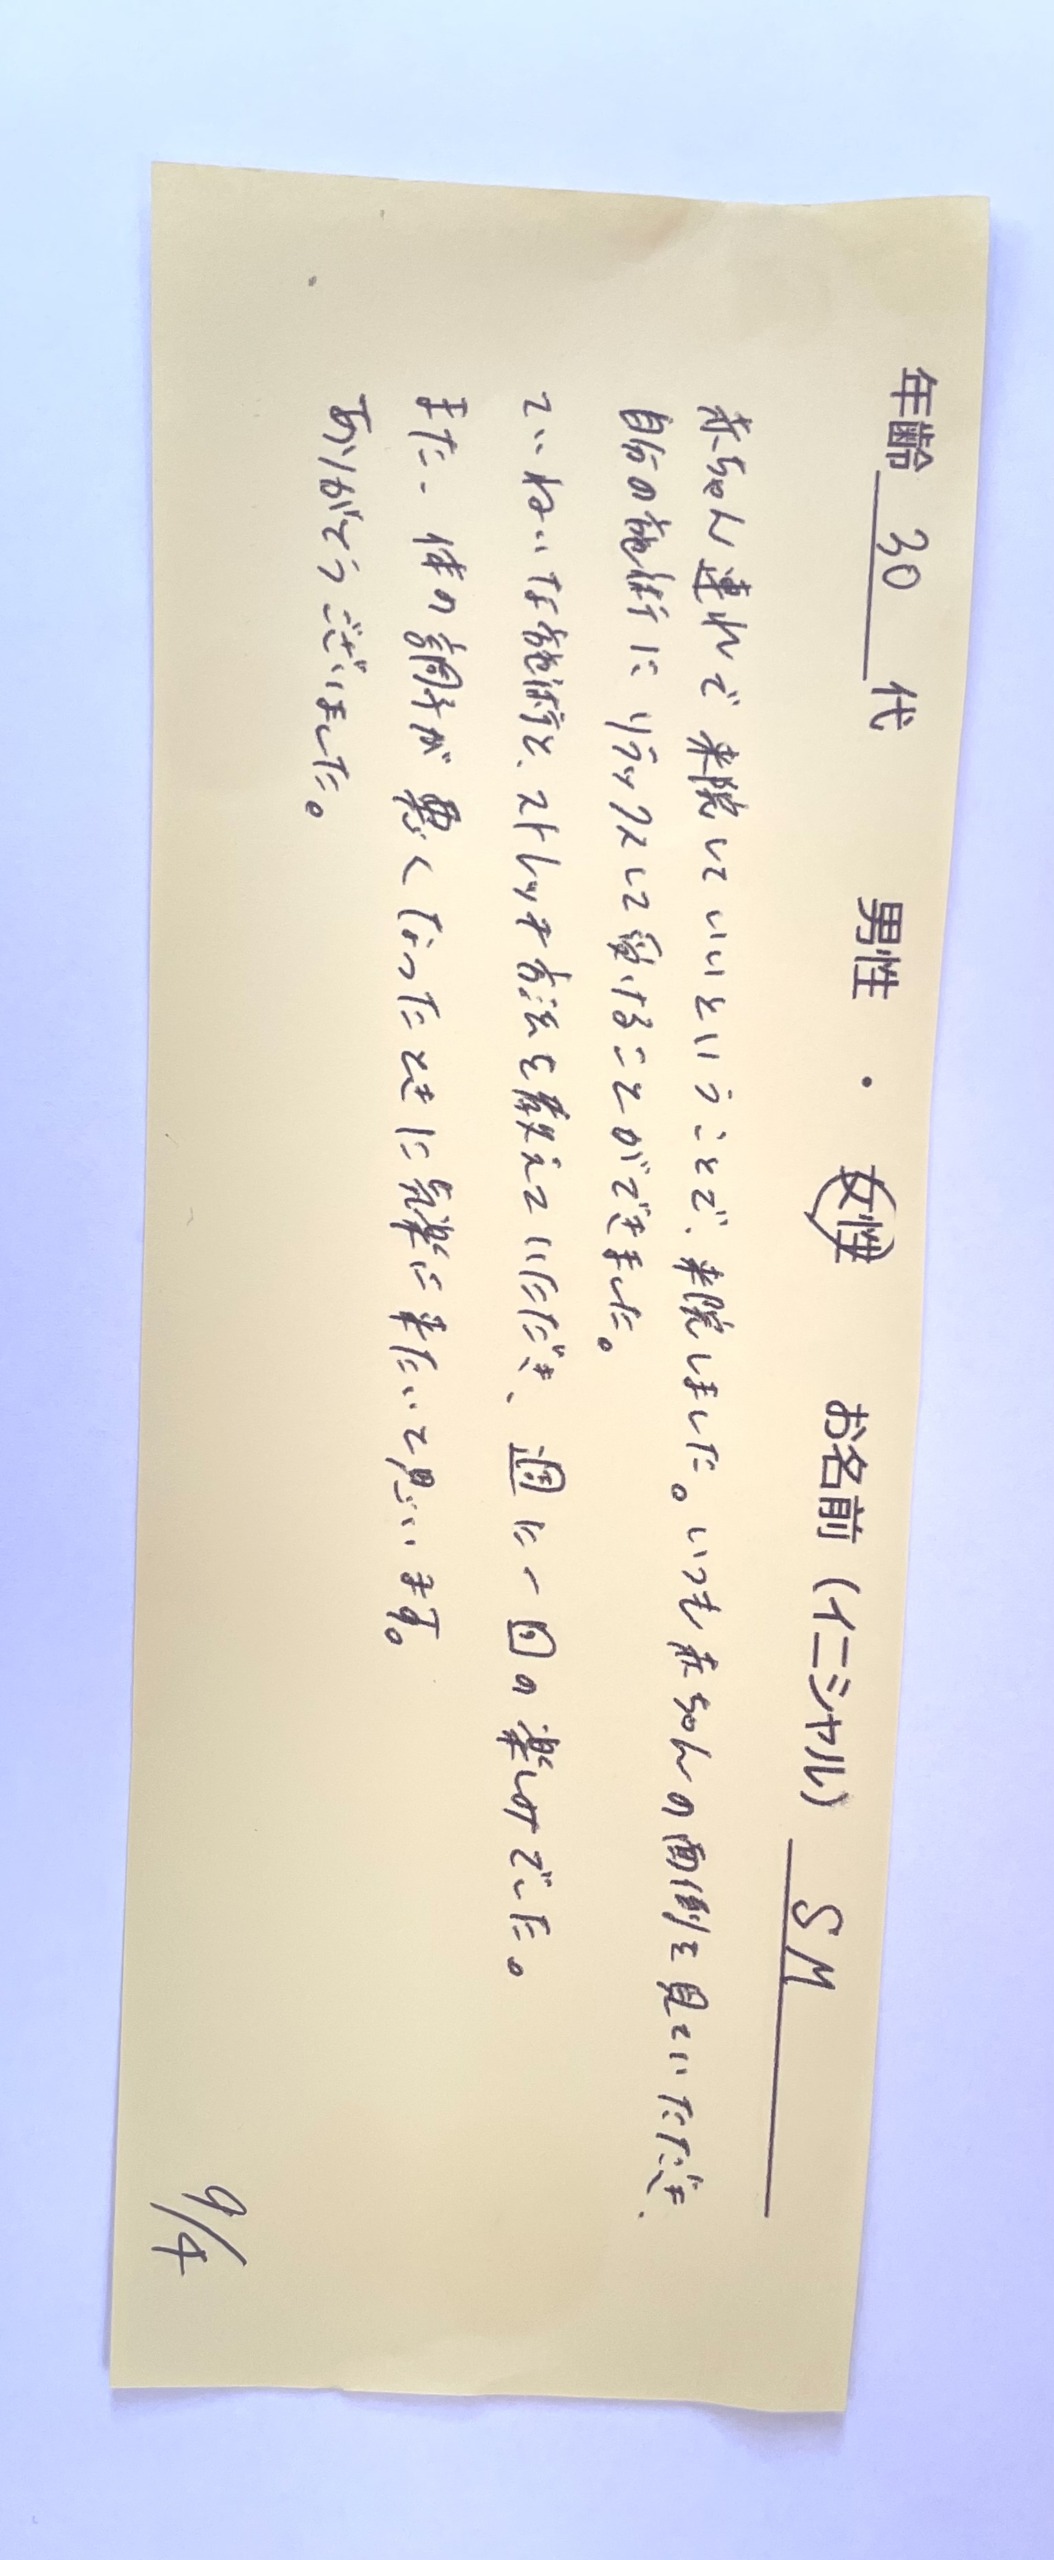 年齢 30 代 男性 ・ 女性 お名前(イニシャル) SM
赤ちゃん連れで来院していいということで、来院しました。いつも赤ちゃんの面倒を見ていただき、
自分の施術にリラックスして受けることができました。
ていねいな施術と、ストレッチ方法を教えていただき、週に一回の楽しみでした。
また、体の調子が悪くなったときに気楽に来たいと思います。
ありがとうございました。
9/4